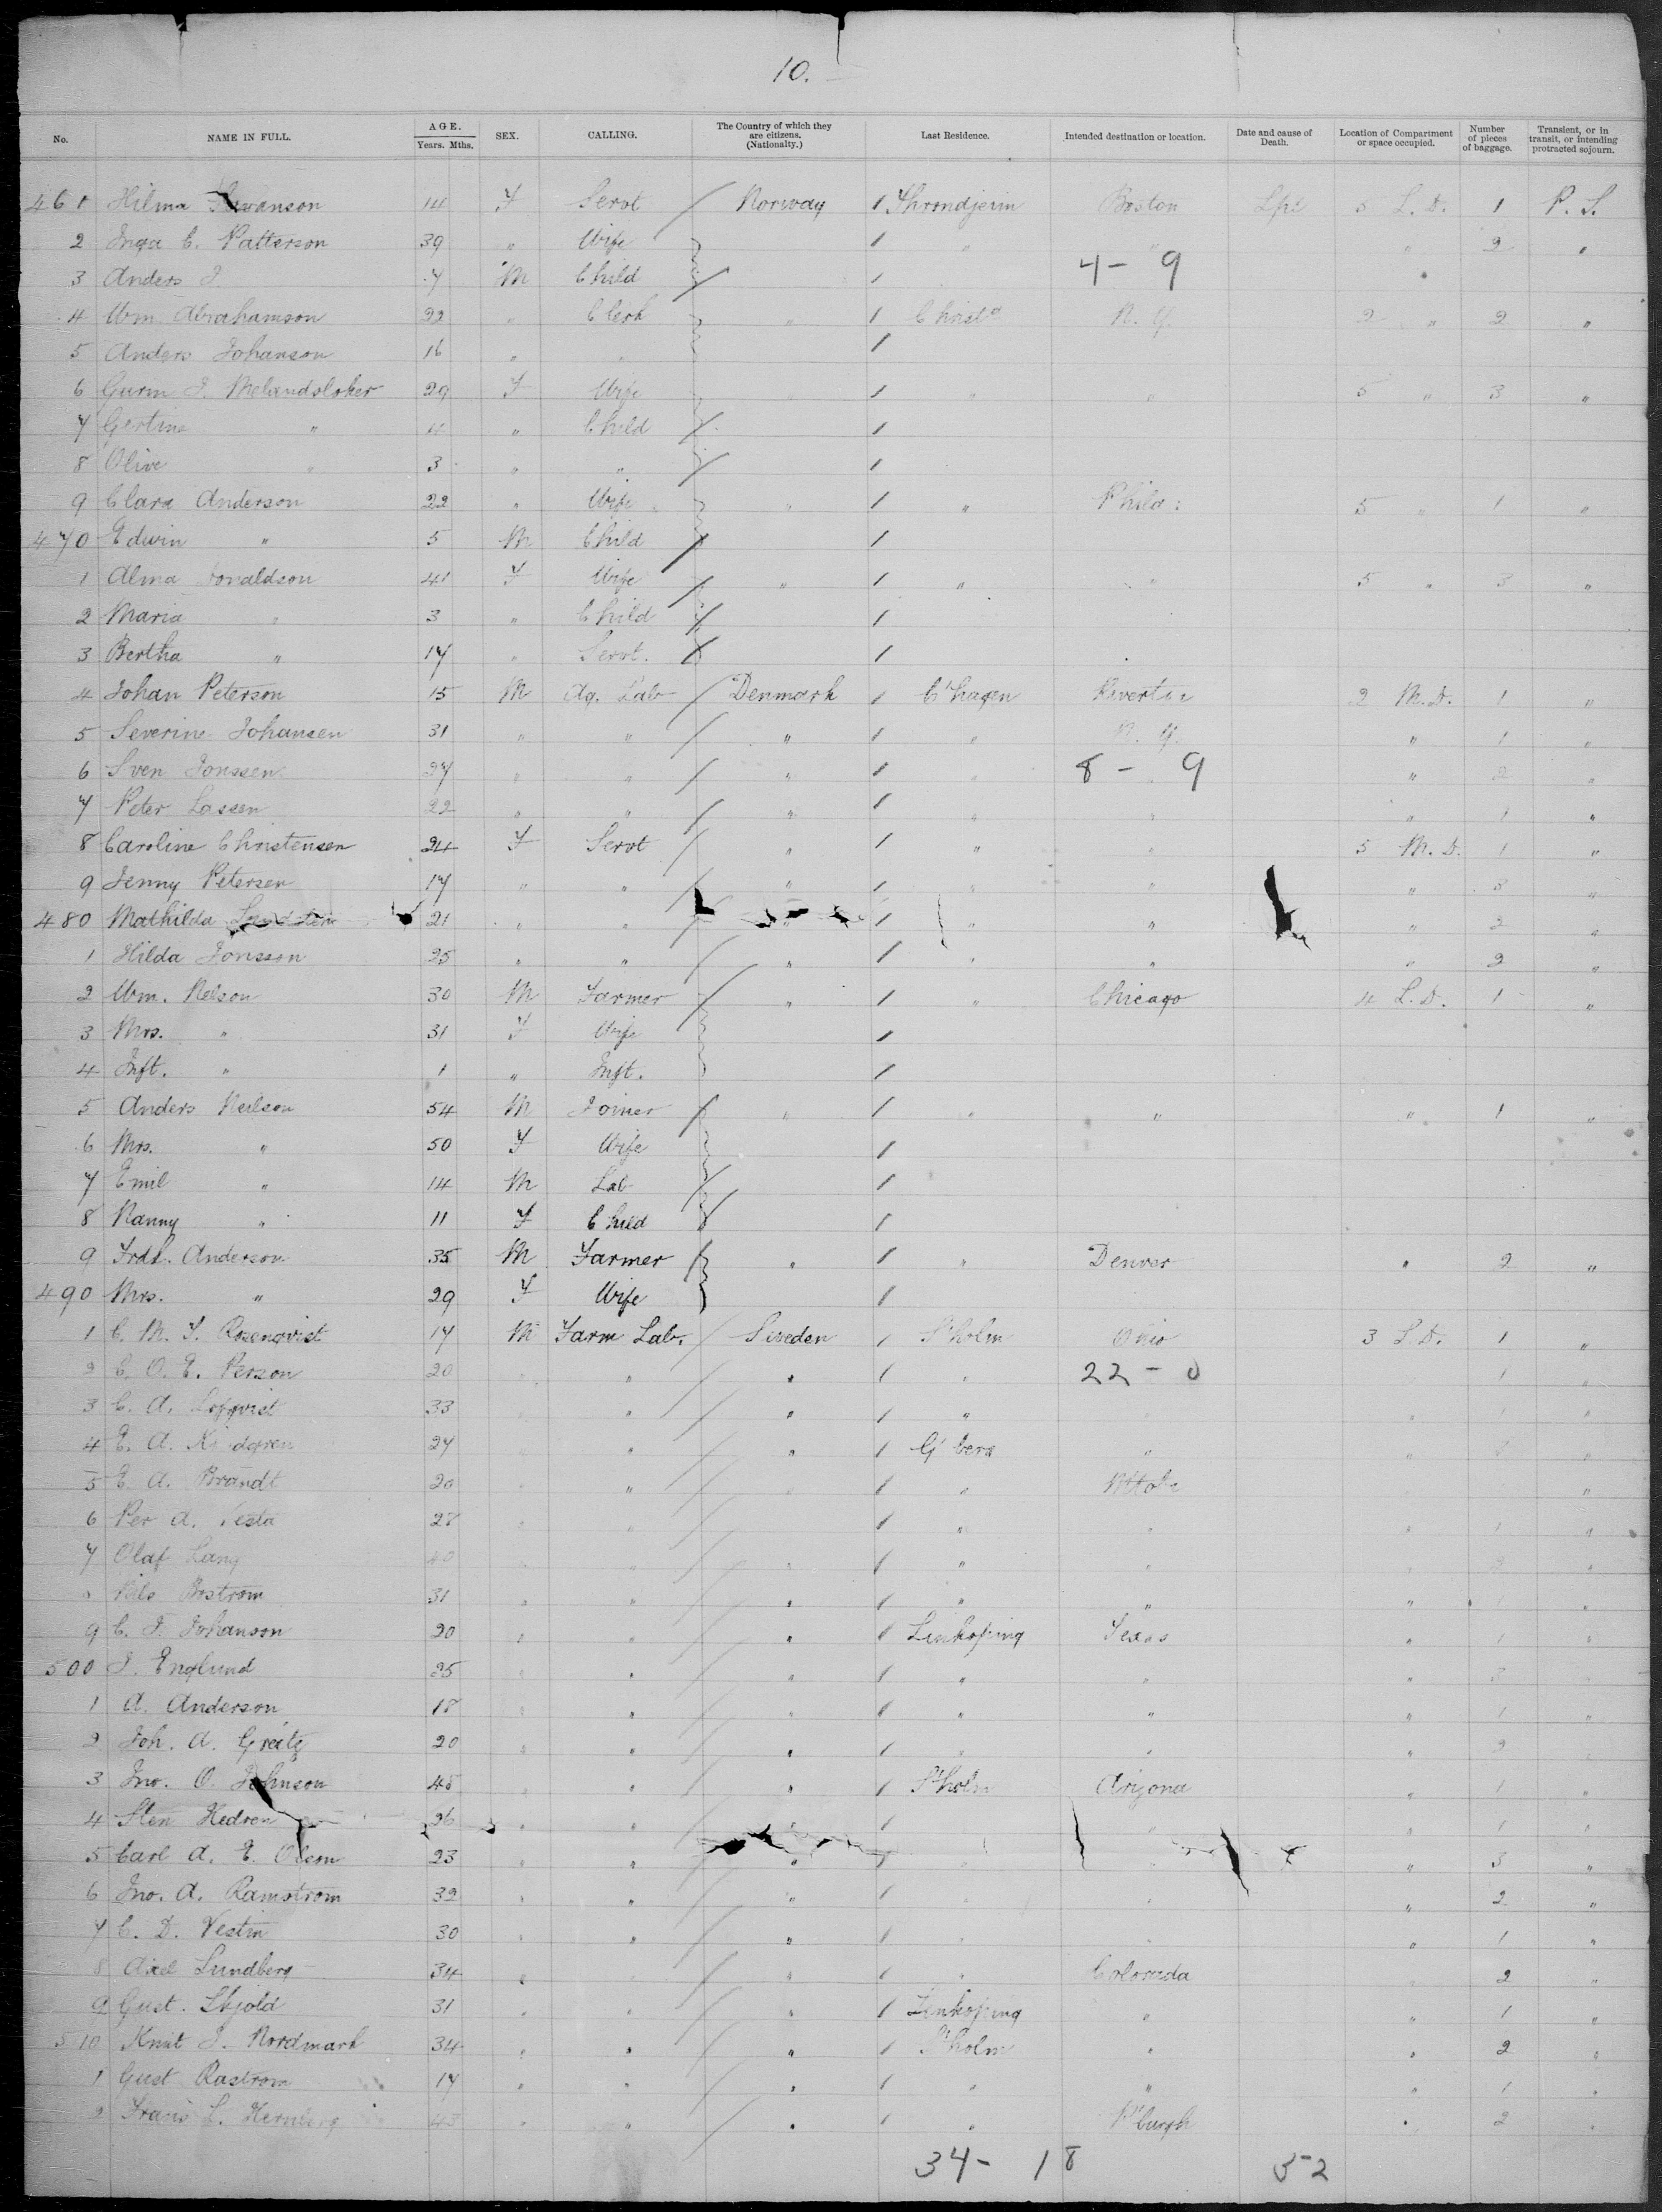 10.
No. NAME IN FULL. AGE. Years. Mths. SEX. CALLING. The Country of which they are citizens. (Nationalty.) Last Residence. Intended destination or location. Date and cause of Death. Location of Compartment or space occupied. Number of pieces of baggage. Transient, or in transit, or intending protracted sojourn.
461 Hilma Swanson 14 F Servt / Norway 1 Throndjeim Boston 5 L.D. 1 P.S.
2 Inga C. Patterson 39 " Wife 1 " " " 2 "
3 Anders J 7 M Child / 1 4 - 9
4 Wm Abrahamson 22 " Clerk " 1 Christa N.Y. 2 " 2 "
5 Anders Johanson 16 " " 1
6 Gurin J. Melandsloker 29 F Wife " 1 " " 5 " 3 "
7 Gertine " 4 " Child / 1
8 Olive " 3 " " / 1
9 Clara Anderson 22 " Wife " 1 " Phila: 5 " 1 "
470 Edwin " 5 M Child / 1
1 Alma Jonaldson 41 F Wife / " 1 " " 5 " 3 "
2 Maria " 3 " Child / 1
3 Bertha " 17 " Servt. / 1
4 Johan Peterson 15 M Ag. Lab / Denmark 1 C'hagen 2 M.D. 1 "
5 Severine Johansen 31 " " / " 1 " N.Y. " 1 "
6 Sven Jonssen 27 " " / " 1 " 8 - 9 " 2 "
7 Peter Lassen 22 " " / " 1 " " " 1 "
8 Caroline Christensen 24 F Servt / " 1 " " 5 M.D. 1 "
9 Jenny Petersen 17 " " / " 1 " " " 3 "
480 Mathilda 21 " " / " 1 " " " 2 "
1 Hilda Jonsson 25 " " / " 1 " " " 2 "
2 Wm. Nelson 30 M Farmer / " 1 " Chicago 4 L.D. 1 "
3 Mrs. " 31 F Wife 1
4 Inft. " 1 " Inft. 1
5 Anders Neilson 54 M Joiner / " 1 " " " 1 "
6 Mrs. " 50 F Wife 1
7 Emil " 14 M Lab / 1
8 Nanny " 11 F Child / 1
9 Fredk. Anderson 35 M Farmer / " 1 " Denver " 2 "
490 Mrs. " 29 F Wife 1
1 C. M. F. Rosenqvist 17 M Farm Lab. / Sweden 1 S'holm Ohio 3 L.D. 1 "
2 C. O. E. Person 20 " " / " 1 " 22 - 0 1 "
3 C. A. Lofqvist 33 " " / " 1 " " " 1 "
4 E. A. 27 " " / " 1 G'berg " " "
5 E. A. Brandt 20 " " / " 1 " "
6 Per A. 28 " " / 1 " " " 1 "
7 Olaf Lang 40 " " / " 1 " " " 2 "
8 Nils Bostrom 31 " " / " 1 " " " 1 "
9 C. J. Johanson 20 " " / " 1 Linkoping Texas " 1 "
500 J. Englund 25 " " / " 1 " " " 3 "
1 A. Anderson 18 " " / " 1 " " " 1 "
2 Joh. A. Greitz 20 " " / " 1 " " " 2 "
3 Jno. O. Johnson 48 " " / " 1 S'holm Arizona " 1 "
4 Sten Hedren 26 " " / " 1 " " 1 "
5 Carl A. E. Olsom 23 " " / " 1 " " " 3 "
6 Jno. A. Ramstrom 32 " " / " 1 " " " 2 "
7 C. D. Vestin 30 " " / " 1 " " " 1 "
8 Axel Lundberg 34 " " / " 1 " Colorado " 2 "
9 Gust. Skjold 31 " " / " 1 Linkoping " " 1 "
510 Knut J. Nordmark 34 " " / " 1 S'holm " " 2 "
1 Gust Rastrom 17 " " / " 1 " " " 1 "
2 Frans L. 43 " " / " 1 " P'burgh " 2 "
34 - 18 52